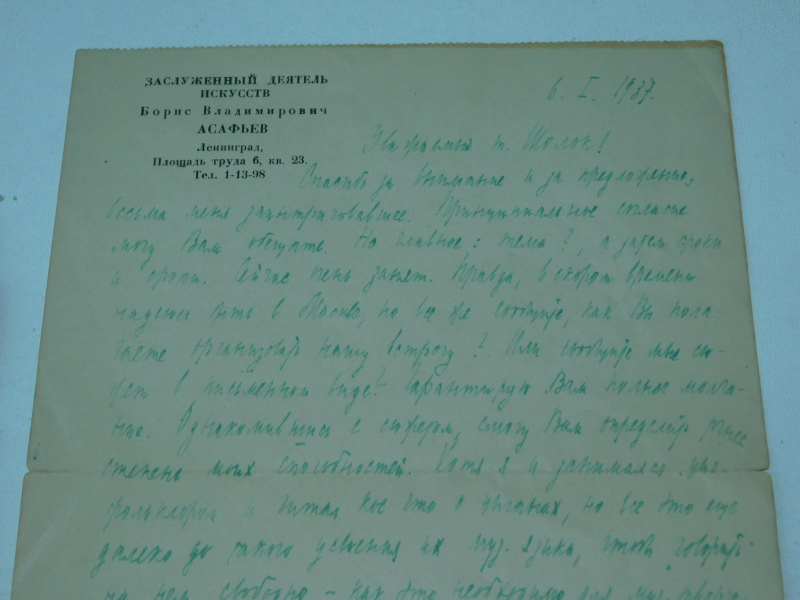 ЗАСЛУЖЕННЫЙ ДЕЯТЕЛЬ
ИСКУССТВ
Борис Владимирович
АСАФЬЕВ
Ленинград,
Площадь труда 6, кв. 23.
Тел. 1-13-98
6. I. 1937.
Уважаемый т. Шолок!
Спасибо за внимание и за предложение,
весьма меня заинтриговавшее. Принципиальное согласие
могу Вам обещать. Но главное: тема?, а затем сроки
и сроки. Сейчас очень занят. Правда, в скором времени
надеюсь быть в Москве, но все же сообщите, как Вы пола-
гаете организовать нашу встречу? Или сообщите мне сю-
жет в письменном виде? Гарантирую Вам полное молча-
ние. Ознакомившись с сюжетом, смогу Вам определить
степень моих способностей. Хотя я и занимался цыг.
фольклором и читал кое что о цыганах, но все это еще
далеко до такого усвоения их муз. языка, чтоб говорить
на нем свободно – как это необходимо для муз.